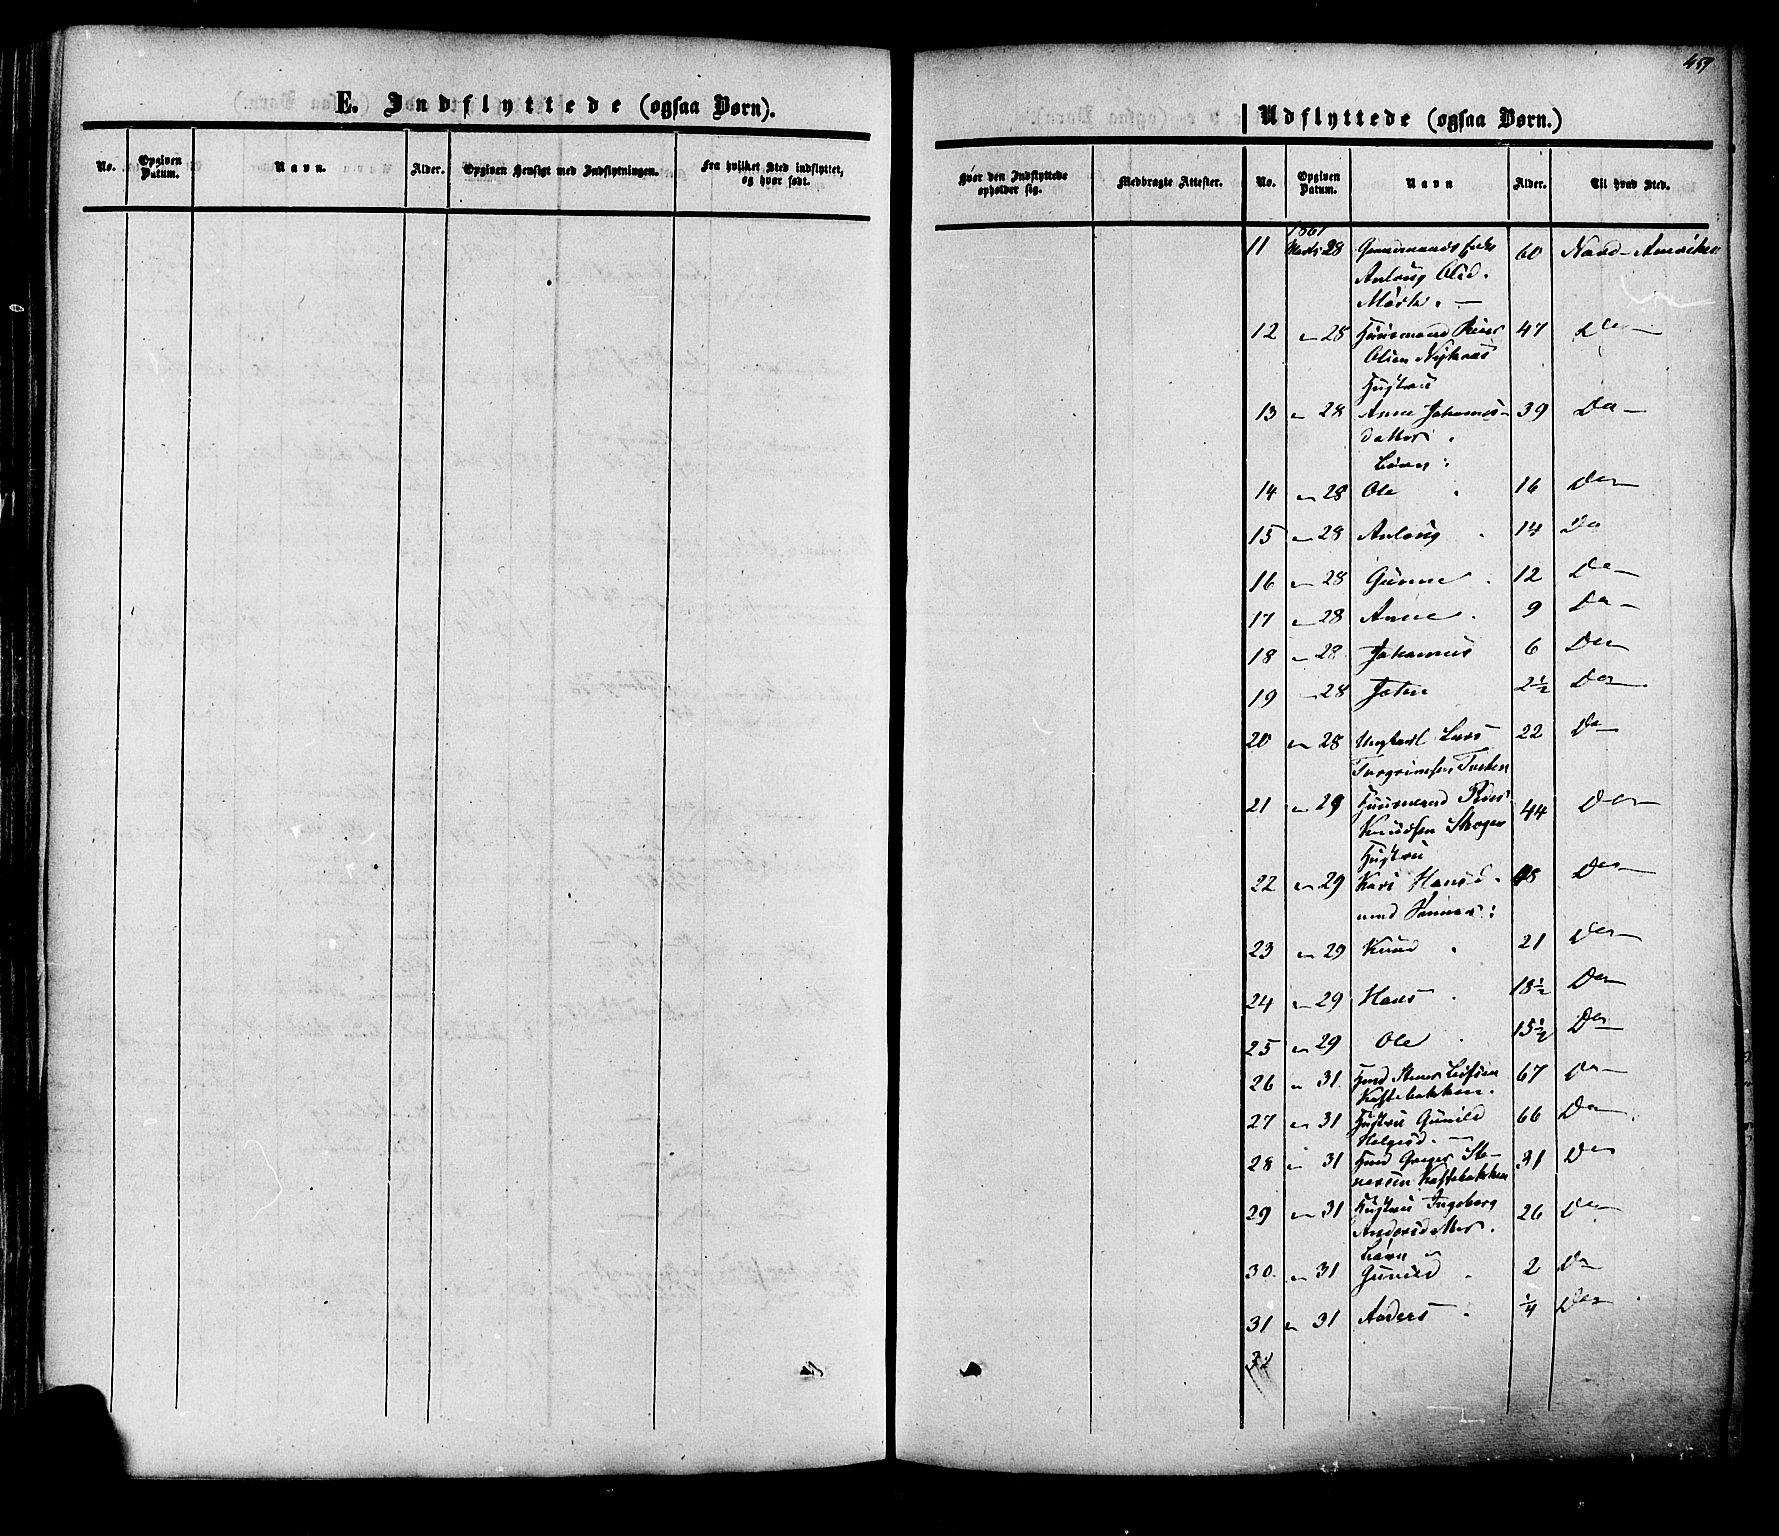 459
E. Indflyttede (ogsaa Børn).
Udflyttede (ogsaa Børn.)
No. Opgiven Datum. Navn. Alder. Opgiven Hensigt med Indflytningen. Fra hvilket Sted indflyttet, og hvor født.
Hvor den Indflyttede opholder sig. Medbragte Attester. No. Opgiven Datum. Navn Alder. Til hvad Sted.
1861
11 28 60 Nord-Amerika
Anlaug Olsd.
12 " 28 Huusmand 47 Do
Olsen
Hustrue
13 " 28 Anne Johannes- 39 Do
datter.
Børn:
14 " 28 Ole 16 Do
15 " 28 Anlaug 14 Do
16 " 28 Gunne 12 Do
17 " 28 Anne 9 Do
18 " 28 Johannes 6 Do
19 28 2½ Do
20 " 28 Ungkarl Lars 22 Do
Torgrimsen
21 " 29 Huusmand 44 Do
Knudsen
Hustrue
22 " 29 Kari Hansd. 48 Do
med Sønner:
23 " 29 Knud 21 Do
24 " 29 Hans 18½ Do
25 " 29 Ole 15½ Do
26 " 31 Hmd Stener 67 Do
Kastebakken.
27 " 31 Hustru Gunild 66 Do
Helgesd.
28 " 31 Hmd Ste- 31 Do
nersen Kastebakken
29 " 31 Hustrue Ingeborg 26 Do
Andersdatter.
Børn
30 " 31 Gunild 2 Do
31 " 31 Anders ¼ Do
32